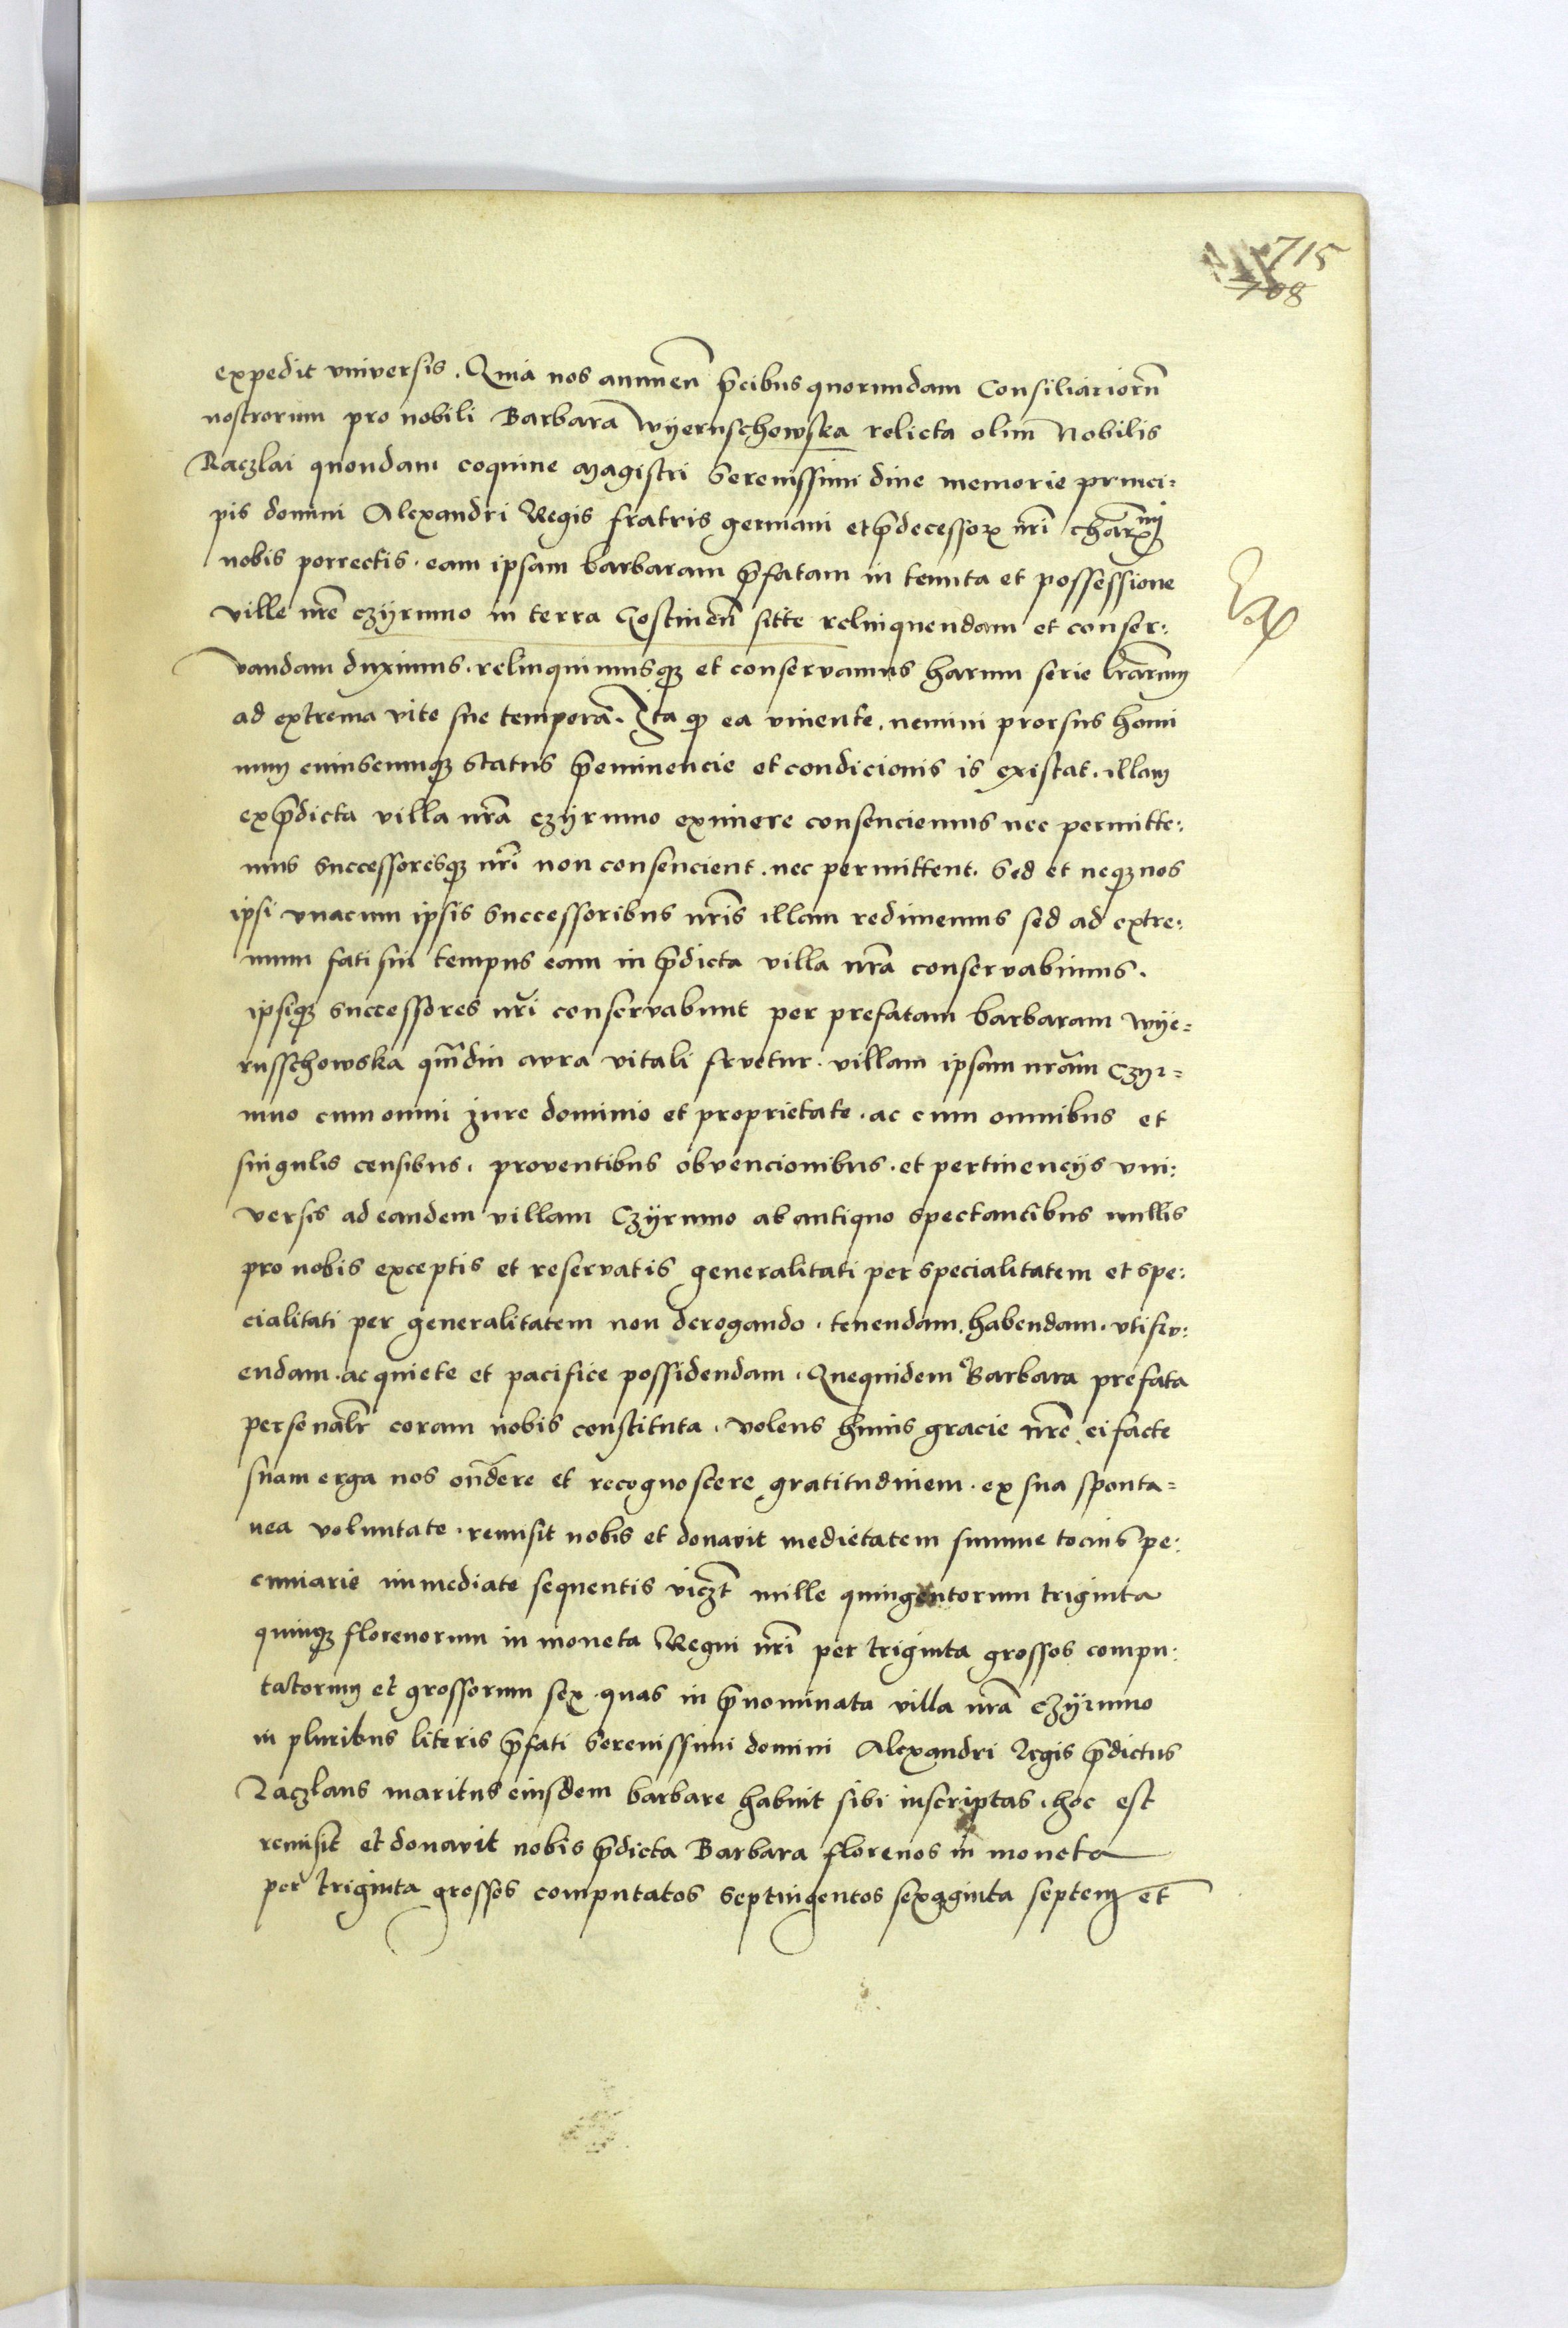 715
708
expedit vniversis. Quia nos annuen̄ p̄cibus quorundam Consiliariorū
nostrorum pro nobili Barbara Wyernschowska relicta olim Nobilis
Raczlai quondam coquine magistri Serenissimi diue memorie princi:
pis domini Alexandri Regis fratris germani et p̄decessor̄ nr̄i char̄mi
nobis porrectis. eam ipsam barbaram p̄fatam in tenuta et possessione
ville nr̄e Czyrmno in terra Gostinen̄ sitte relinquendam et conser:
vandam duximus. relinquimusq; et conservamus harum serie lr̄arum
ad extrema vite sue tempora. Ita q̄ ea viuente. nemini prorsus homi
num cuiuscumq; status p̄eminencie et condicionis is existat. illam
ex p̄dicta villa nr̄a Czyrmno eximere consenciemus nec permitte:
mus successoresq; nr̄i non consencient. nec permittent. Sed et neq; nos
ipsi vnacum ipsis successoribus nr̄is illam redimemus sed ad extre:
mum fati sui tempus eam in p̄dicta villa nr̄a conservabimus.
ipsiq; successores nr̄i conservabunt per prefatam barbaram Wye=
russchowska qm̄diu avra vitali frvetur. villam ipsam nram̄ Czyr=
mno cum omni jure dominio et proprietate. ac cum omnibus et
singulis censibus. proventibus obvencionibus. et pertinencijs vni:
versis ad eandem villam Czyrmno ab antiquo spectantibus nullis
pro nobis exceptis et reservatis generalitati per specialitatem et spe:
cialitati per generalitatem non derogando. tenendam. habendam. vtifrv:
endam. ac quiete et pacifice possidendam. Quequidem Barbara prefata
personalr̄ coram nobis constituta. volens huius gracie nr̄e ei facte
suam erga nos ond̄ere et recognoscere gratitudinem. ex sua sponta=
nea voluntate. remisit nobis et donavit medietatem summe tocius pe:
cuniarie immediate sequentis vicz̄t mille quingentorum triginta
quinq; florenorum in moneta Regni nr̄i per triginta grossos compu:
tatorum et grossorum sex. quas in p̄nominata villa nr̄a Czyrmno
in pluribus literis p̄fati Serenissimi domini Alexandri Regis p̄dictus
Raczlaus maritus eiusdem barbare habuit sibi inscriptas. hoc est
remisit et donavit nobis p̄dicta Barbara florenos in moneta
per triginta grossos computatos Septingentos sexaginta septem et